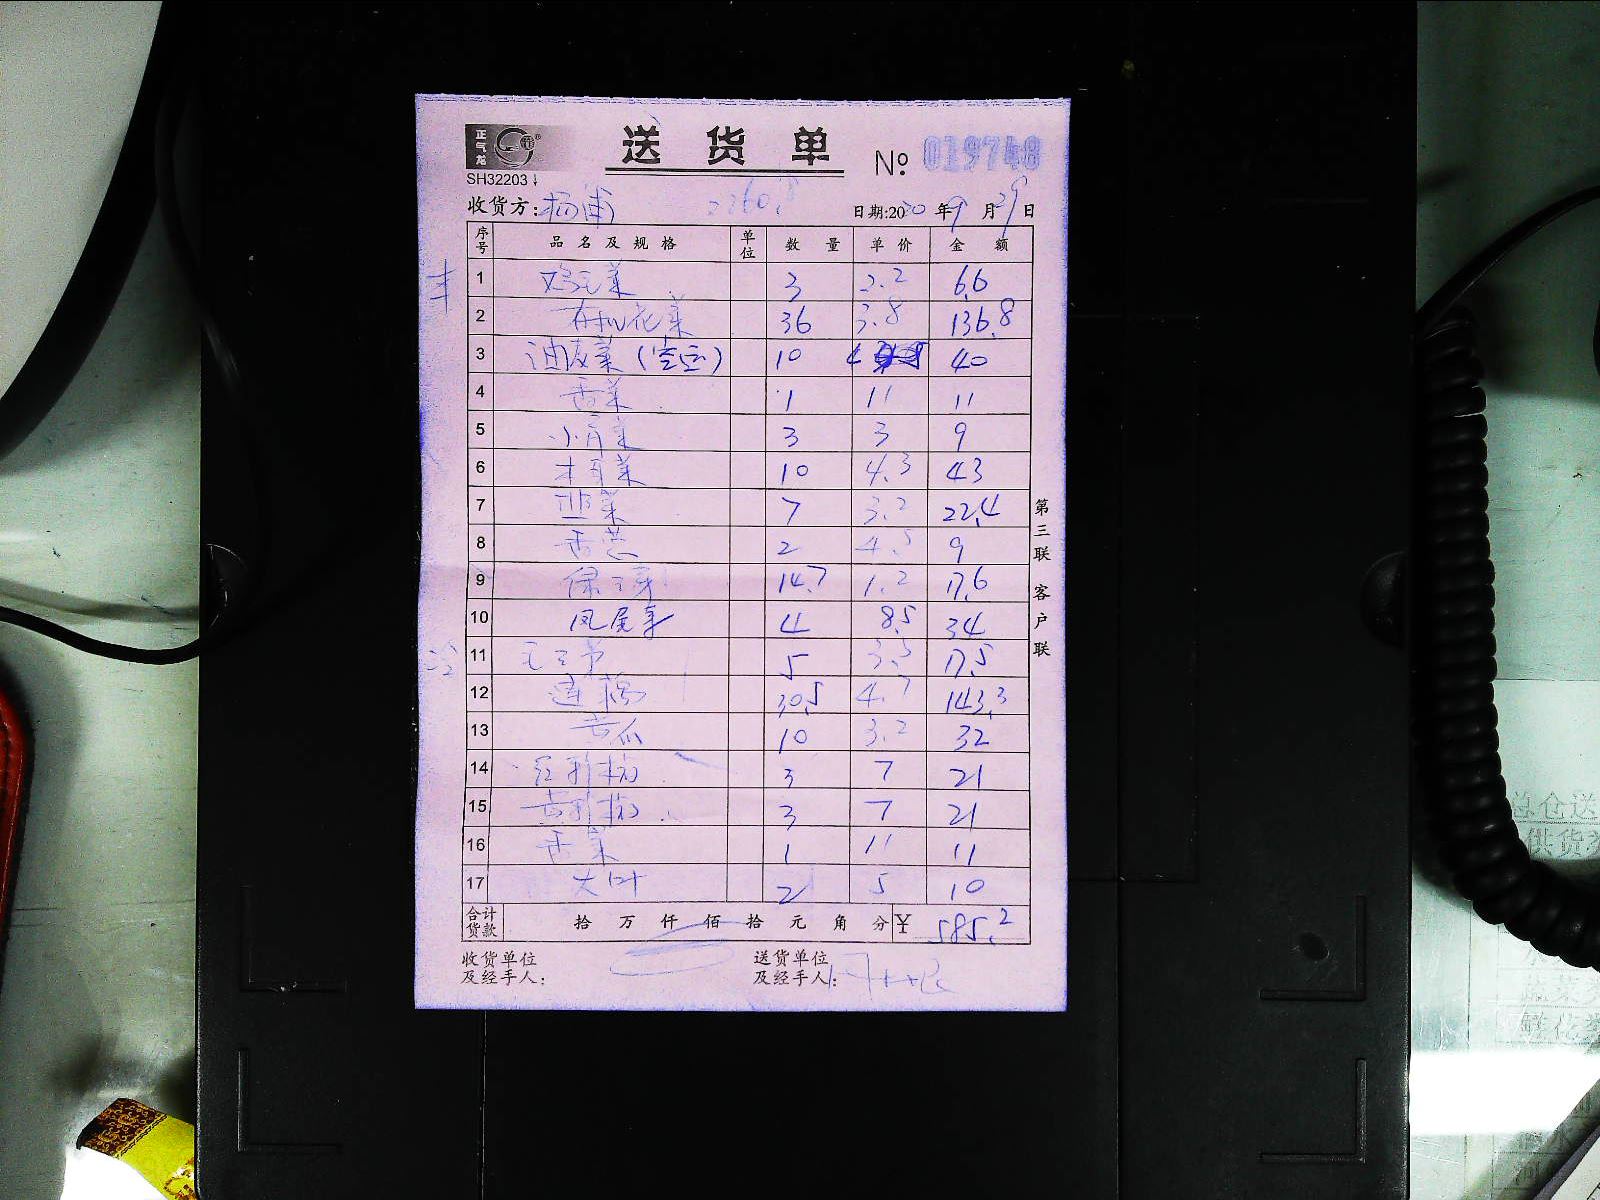 正气龙
送货单 № 019748
SH32203
收货方: 杨浦 2260.8 日期:2020年9月29日
序号 品名及规格 单位 数量 单价 金额
1 鸡毛菜 3 2.2 6.6
2 有机花菜 36 3.8 136.8
3 油麦菜 10 4 40
4 香菜 1 11 11
5 小青菜 3 3 9
6 木耳菜 10 4.3 43
7 韭菜 7 3.2 22.4
8 香葱 2 4.5 9
9 绿豆芽 14.7 1.2 17.6
10 凤尾 4 8.5 34
11 毛豆 5 3.5 17.5
12 莲藕 30.5 4.7 143.3
13 黄瓜 10 3.2 32
14 红彩椒 3 7 21
15 黄彩椒 3 7 21
16 香菜 1 11 11
17 大叶 2 5 10
合计货款 拾 万 仟 佰 拾 元 角 分 ¥ 585.2
收货单位及经手人: 送货单位及经手人:
第三联 客户联
总仓送
供货